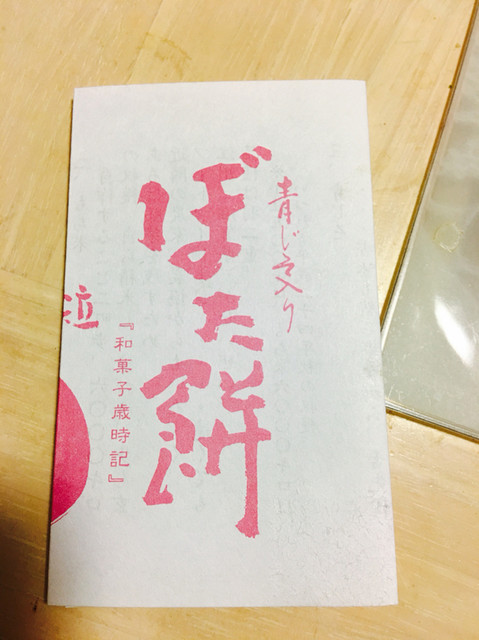 青じそ入り
ぼた餅
『和菓子歳時記』
泣